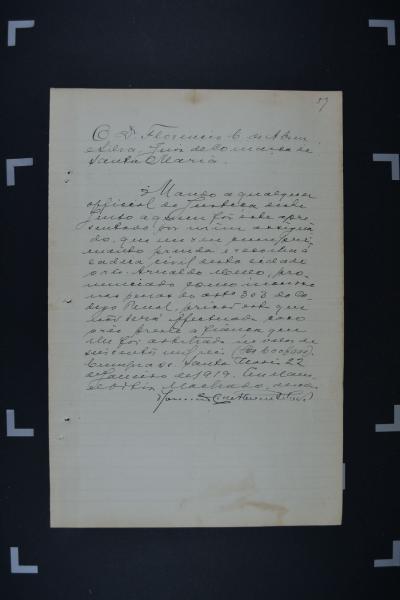 57
O Dr. Florencio C. de Abreu
e Silva, Juiz de Comarca de
Santa Maria.
Mando a qualquer
official de Justiça deste
Juizo a quem fôr este apre
sentado por mim assigna
do, que em seu cumpri
mento prenda e recolha á
cadeia civil desta cidade
o réo Arnaldo Mello, pro
nunciado como incurso
nas penas do art. 303 do Co
digo Penal, prisão esta que
não será effectuada caso o
réo preste a fiança que
lhe foi arbitrada no valor de
mil reis
Cumpra-se. Santa Maria, 22
de Janeiro de 1919. Eu
Machado,